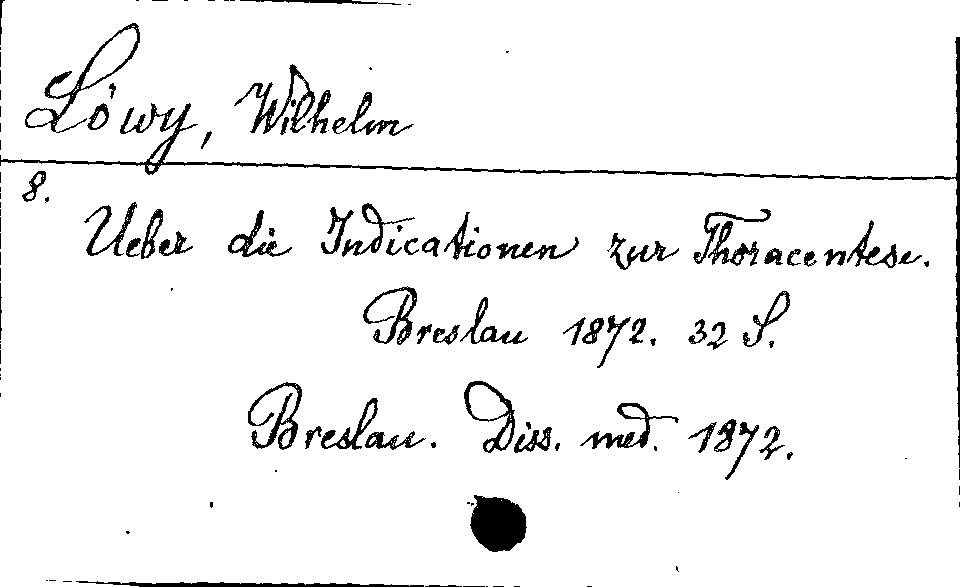 Löwy, Wilhelm
8.
Ueber die Indicationen zur Thoracentese.
Breslau 1872. 32 S.
Breslau. Diss. med. 1872.